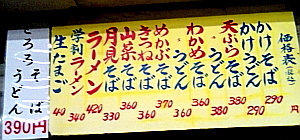 価格表
かけそば 290円
かけうどん 290
天ぷらそば 380
うどん 380
わかめそば 360
うどん 360
めかぶそば 370
きつねそば 360
山菜そば 360
月見そば 330
ラーメン 420
学割ラーメン 340
生たまご 40
とろろそば
うどん
390円